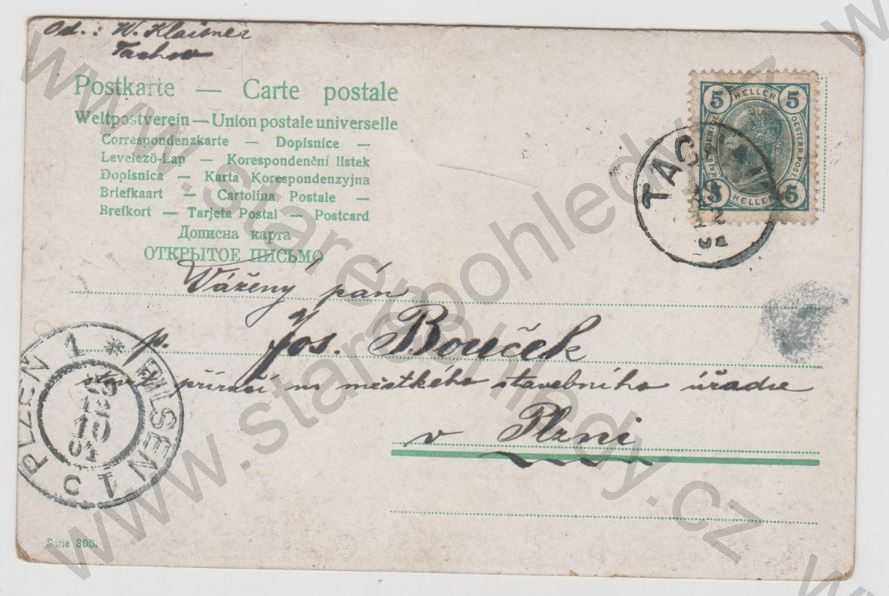 Od.: W. Klaisner
Tachov
Postkarte — Carte postale
Weltpostverein — Union postale universelle
Correspondenzkarte — Dopisnice —
Levelező-Lap — Korespondenční lístek
Dopisnica — Karta Korespondenzyjna
Briefkaart — Cartolina Postale —
Brefkort — Tarjeta Postal — Postcard
Дописна карта
ОТКРЫТОЕ ПИСЬМО
5 HELLER 5
5 HELLER 5
TACHAU
12
Vážený pán
p. Jos. Bouček
městkého stavebního úřadu
v Plzni
PLZEŇ 1 * PILSEN 1
Serie
www.starepohledy.cz
www.starepohledy.cz
www.starepohledy.cz